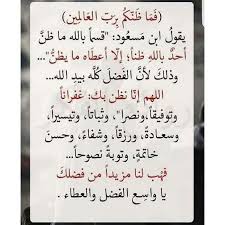 (فَمَا ظَنُّكُمْ بِرَبِّ العَالَمِين)
يقولُ ابن مَسعُود: "قسماً بالله ما ظنَّ
أحدٌ باللهِ ظناً؛ إلّا أعطَاه ما يظنُّ"...
وذلكَ لأنَّ الفَضلَ كُلَّه بيدِ الله...
اللهم إنّا نظن بك: غفراناً
وتوفيقاً،ونصرا"، وثباتاً، وتيسيراً،
وسعادةً، ورزقاً، وشفاءً، وحسنَ
خاتمةٍ، وتوبةً نصوحاً...
فهَب لنا مزيداً من فضلكَ
يا واسِع الفضل والعطاء .